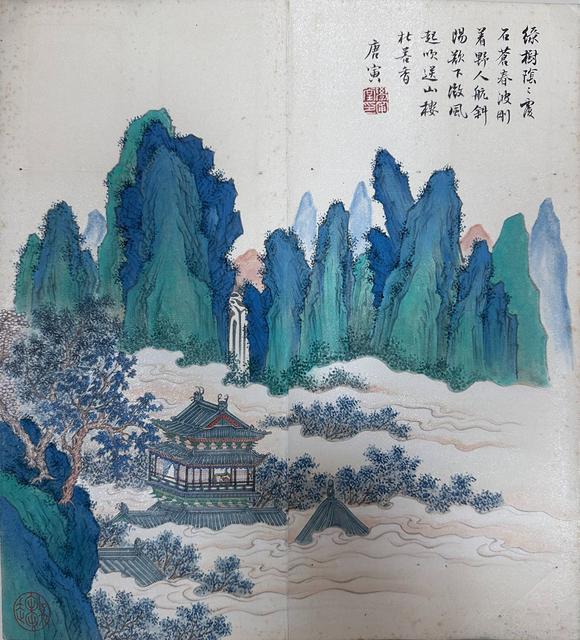 綠樹陰〻覆
石蒼春波剛
着野人航斜
陽欲下微風
起吹送山樓
杜若香
唐寅